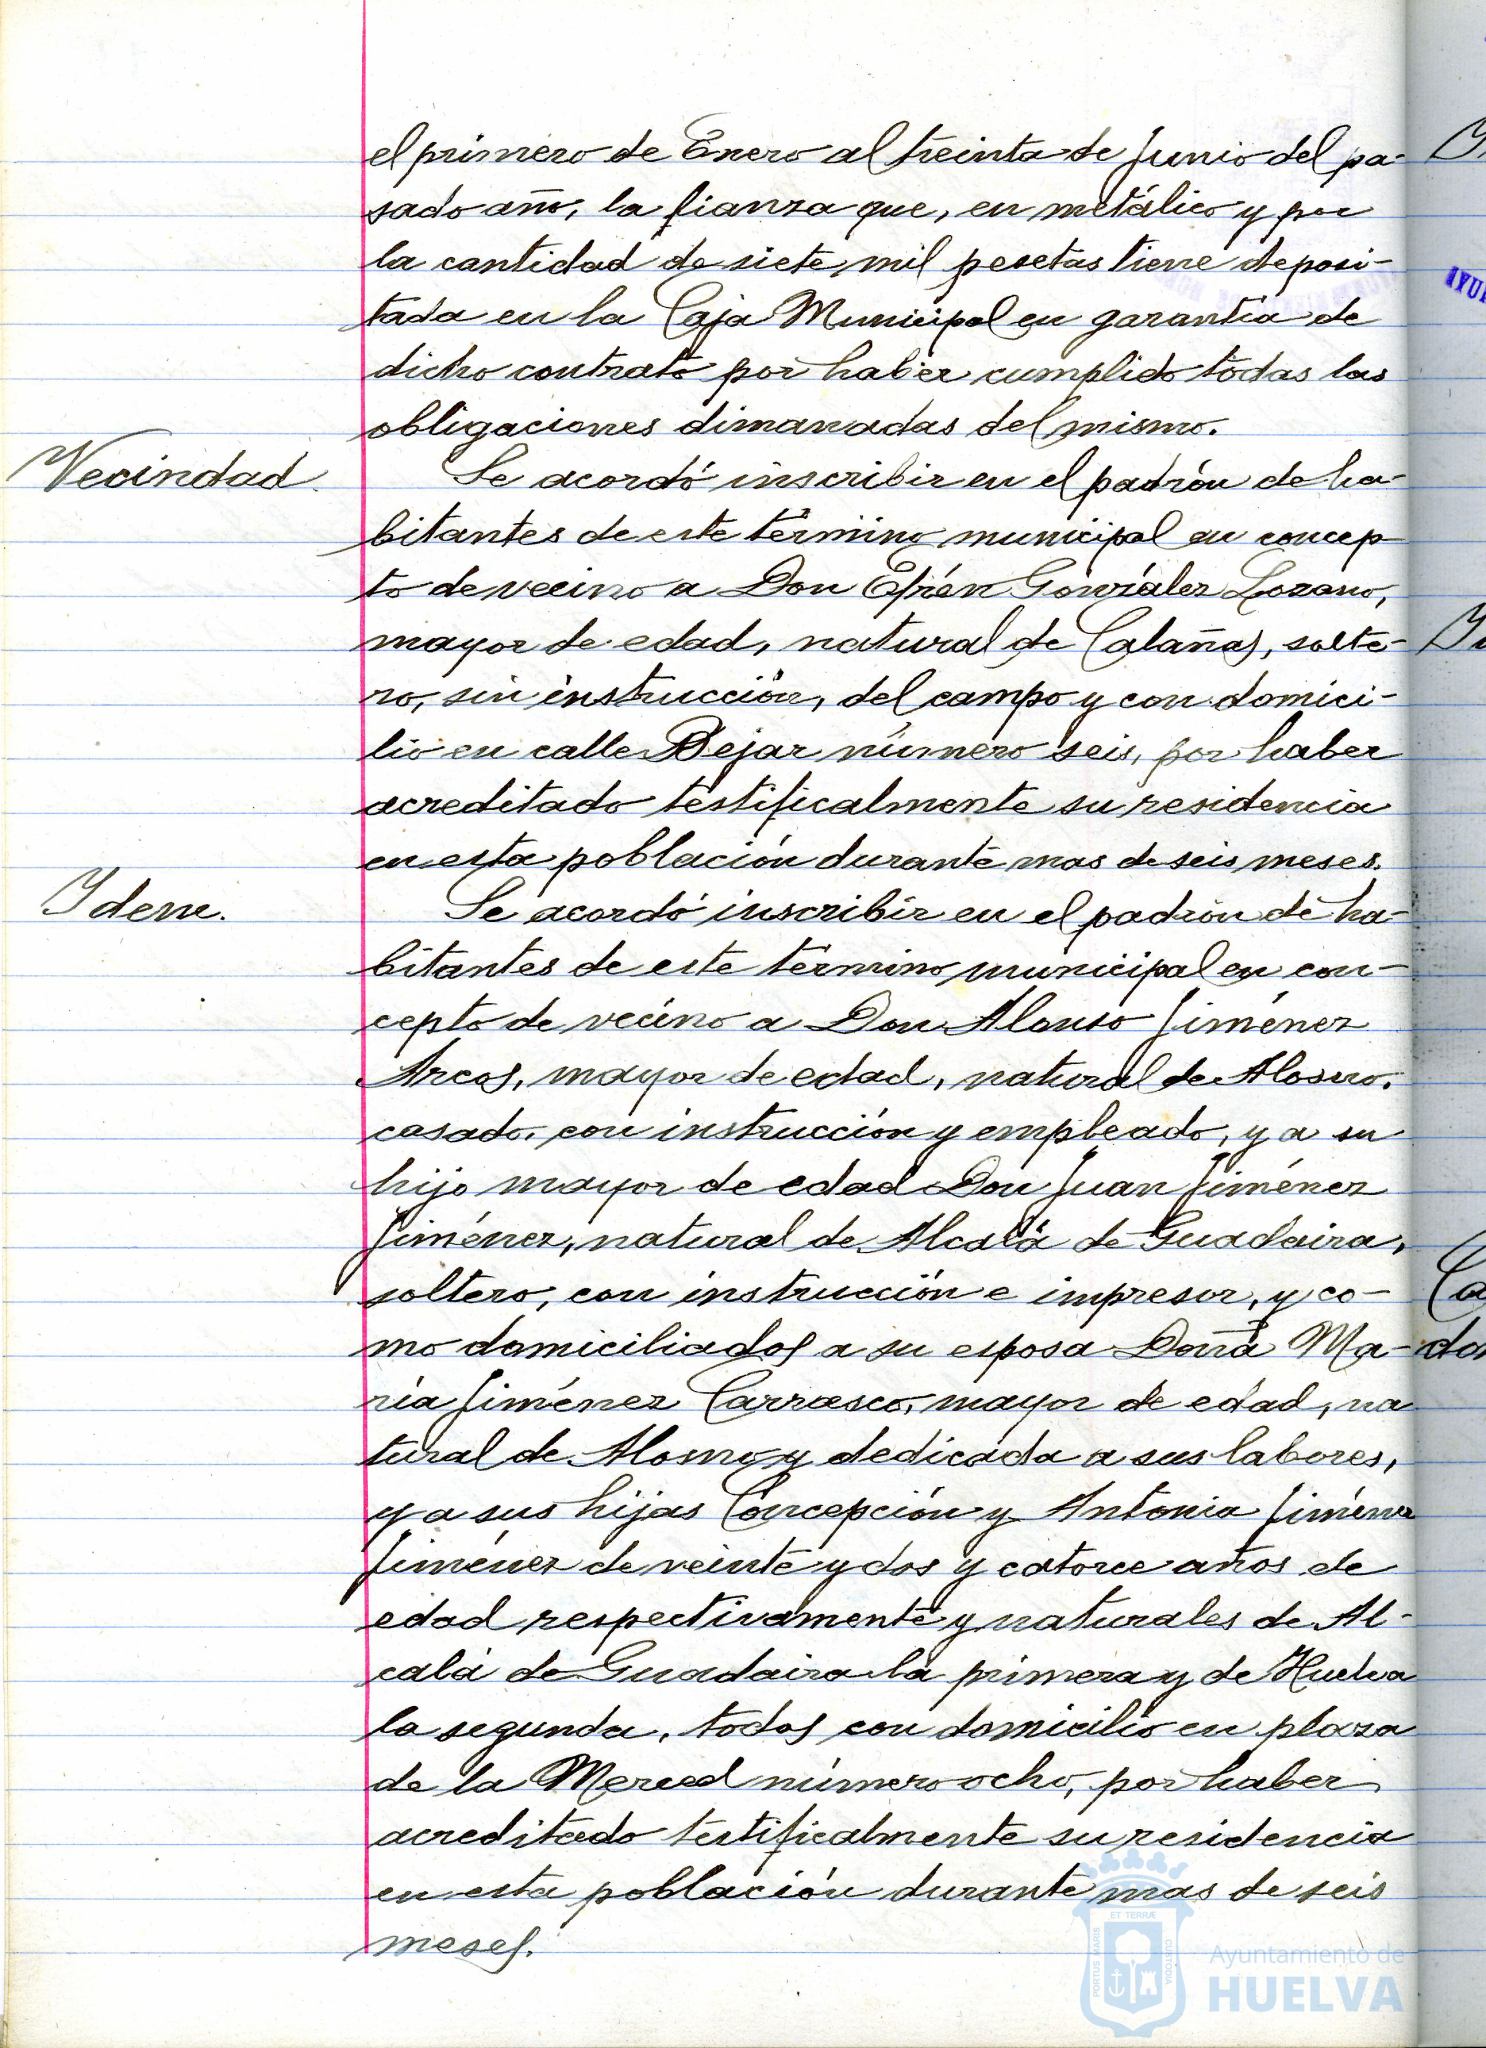 el primero de Enero al treinta de Junio del pa-
sado año, la fianza que, en metálico y por
la cantidad de siete mil pesetas tiene deposi-
tada en la Caja Municipal en garantía de
dicho contrato por haber cumplido todas las
obligaciones dimanadas del mismo.
Vecindad.
Se acordó inscribir en el padrón de ha-
bitantes de este término municipal en concep
to de vecino a Don Efrén González Lozano,
mayor de edad, natural de Calañas, solte-
ro, sin instrucción, del campo y con domici-
lio en calle Bejar número seis, por haber
acreditado testificalmente su residencia
en esta población durante mas de seis meses.
Idem.
Se acordó inscribir en el padrón de ha-
bitantes de este término municipal en con-
cepto de vecino a Don Alonso Jiménez
Arcos, mayor de edad, natural de Alosno,
casado, con instrucción y empleado, y a su
hijo mayor de edad Don Juan Jiménez
Jiménez, natural de Alcalá de Guadaira,
soltero, con instrucción e impresor, y co-
mo domiciliados a su esposa Doña Ma-
ría Jiménez Carrasco, mayor de edad, na
tural de Alosno y dedicada a sus labores,
y a sus hijas Concepción y Antonia Jiménez
Jiménez de veinte y dos y catorce años de
edad respectivamente y naturales de Al-
calá de Guadaira la primera y de Huelva
la segunda, todos con domicilio en plaza
de la Merced número ocho, por haber
acreditado testificalmente su residencia
en esta población durante mas de seis
meses.
ET TERRÆ
PORTUS MARIS
CUSTODIA
Ayuntamiento de
HUELVA